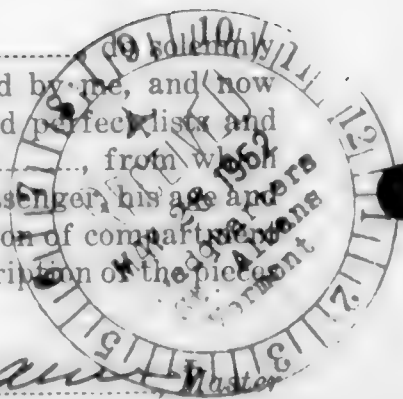 do solemnly
d by me, and now
d perfect lists and
, from which
ssenger, his age and
on of compartment
ription of the pieces
, Master
9 10 11 12 1 2 3 5 7
1952
Headquarters
St. Albans
Vermont